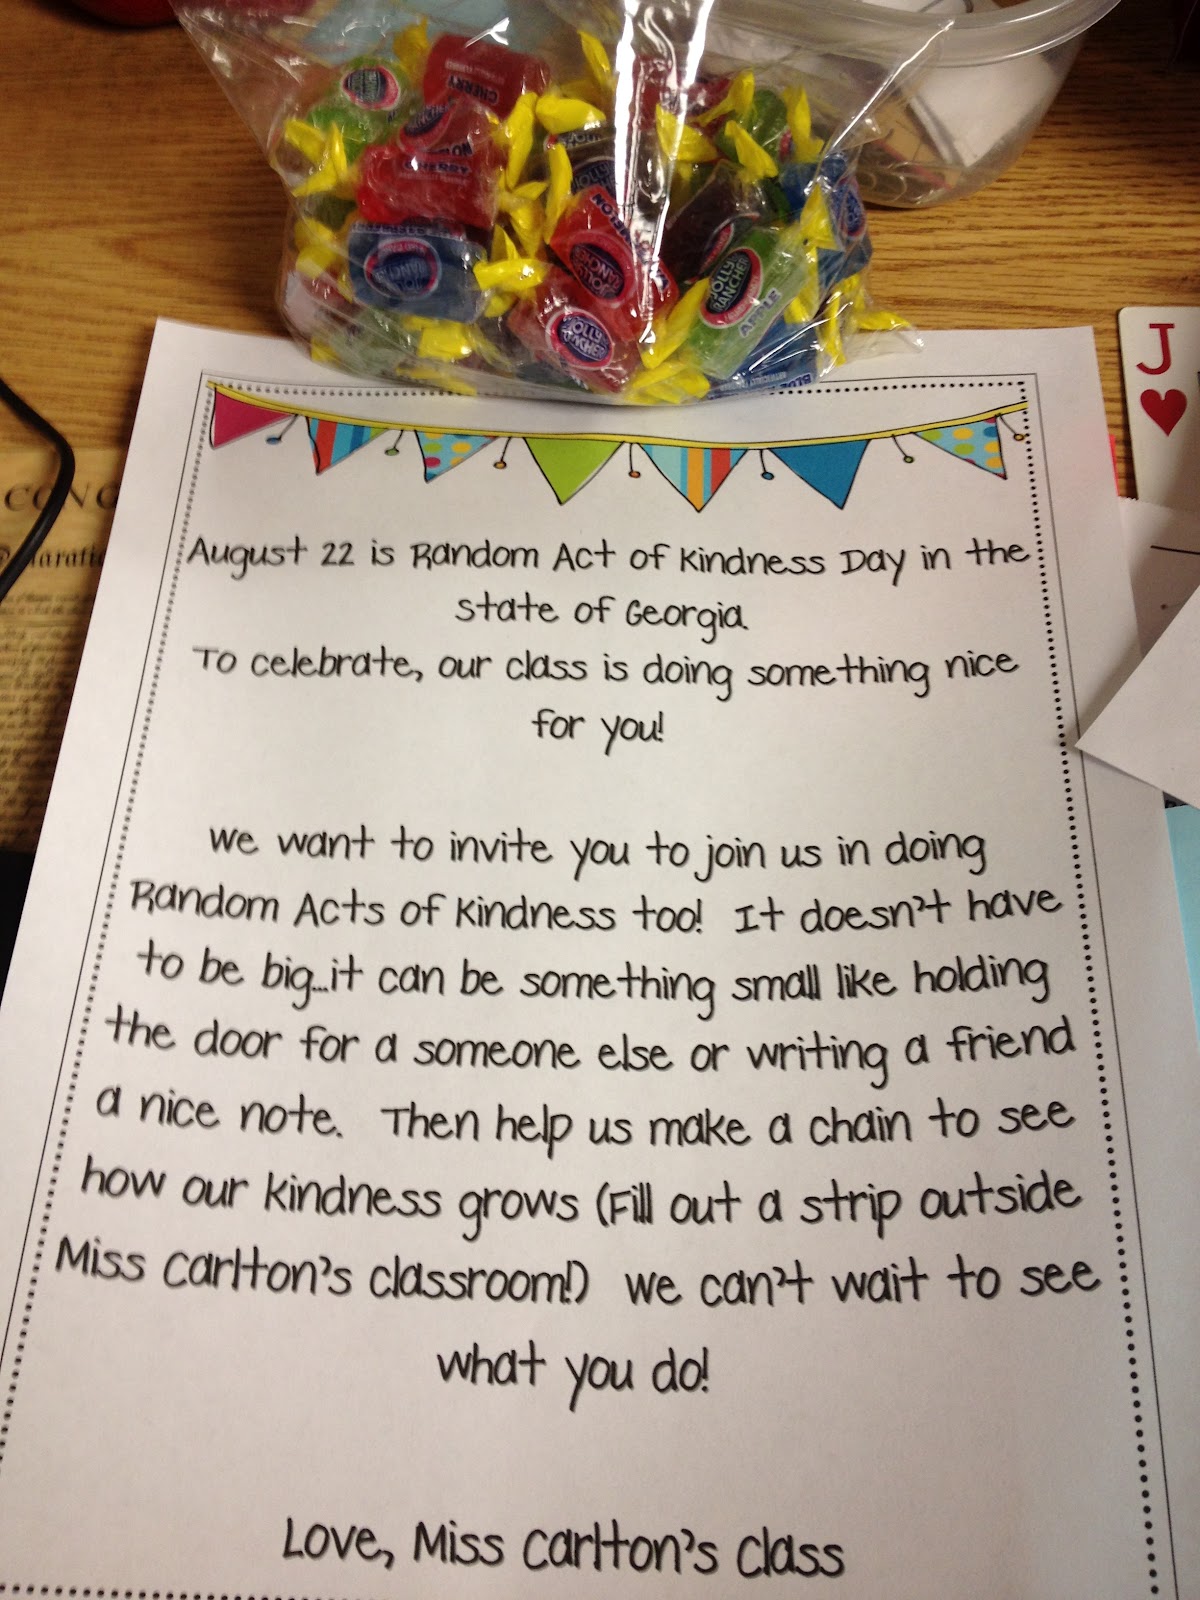 CHERRY
CHERRY
JOLLY RANCHER
JOLLY RANCHER
APPLE
J
CONG
August 22 is Random Act of Kindness Day in the
state of Georgia.
To celebrate, our class is doing something nice
for you!
We want to invite you to join us in doing
Random Acts of Kindness too! It doesn't have
to be big...it can be something small like holding
the door for a someone else or writing a friend
a nice note. Then help us make a chain to see
how our kindness grows (Fill out a strip outside
Miss Carlton's classroom!) We can't wait to see
what you do!
Love, Miss Carlton's Class